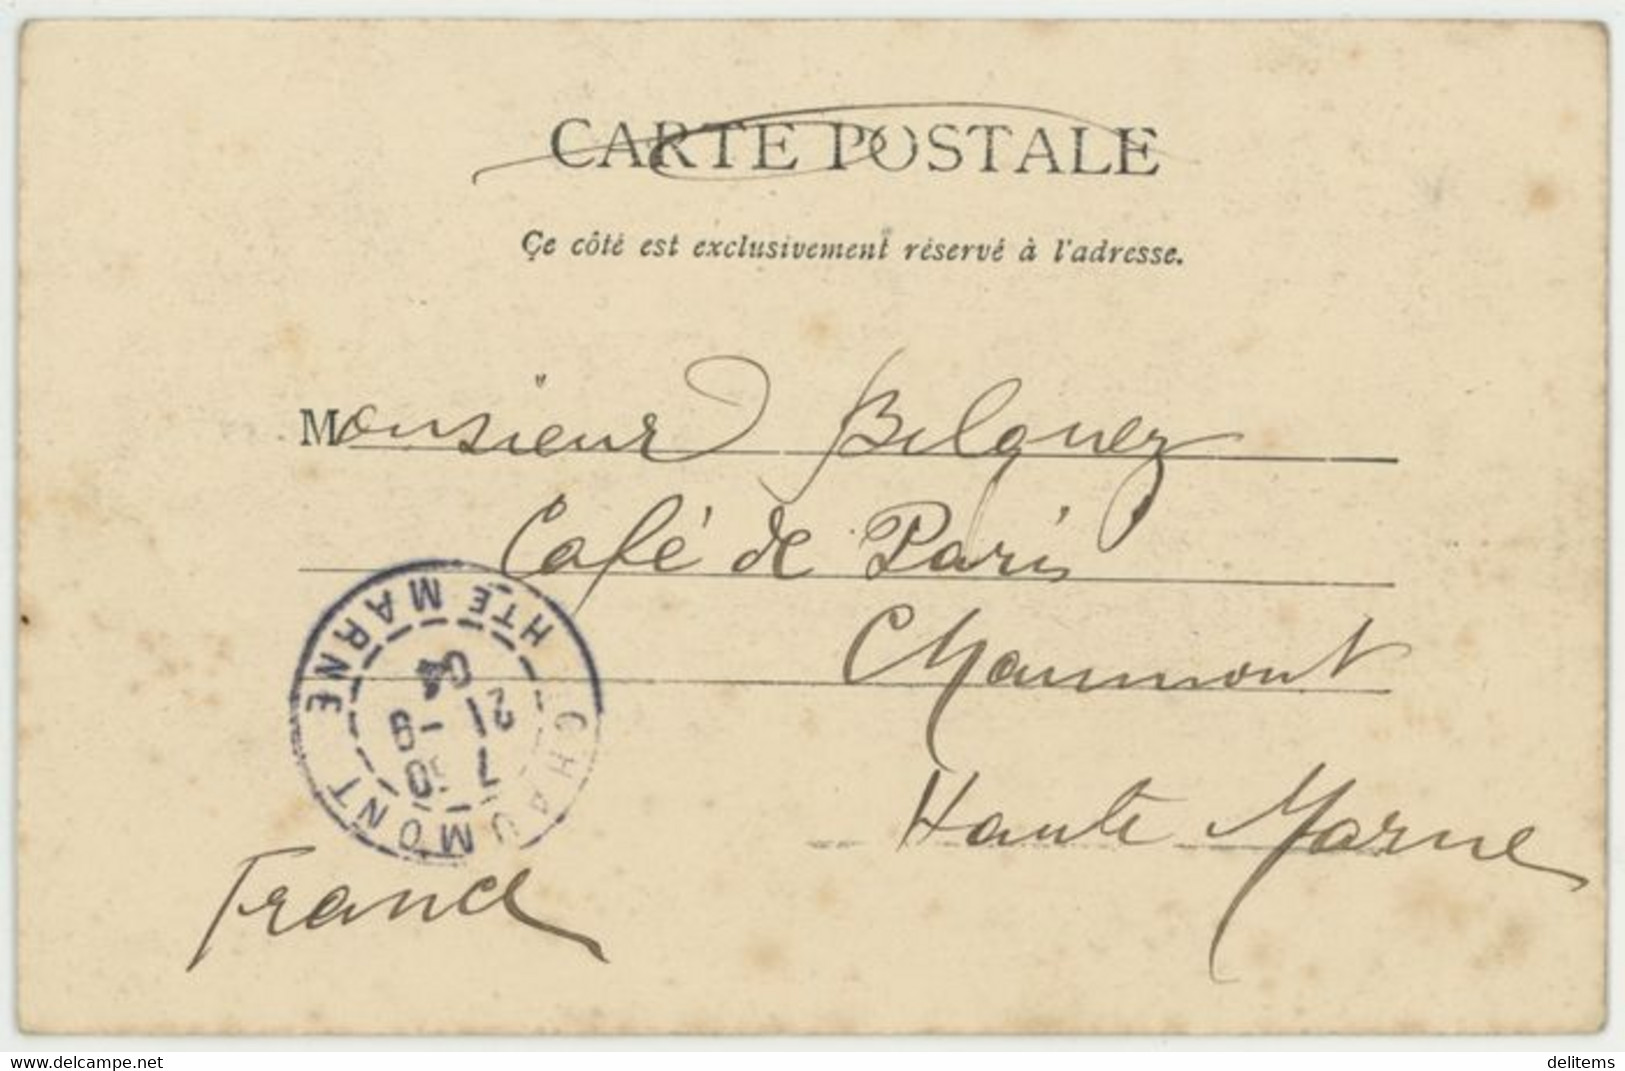 CARTE POSTALE
Ce côté est exclusivement réservé à l'adresse.
Monsieur Belquez
Café de Paris
Chaumont
Haute Marne
France
CHAUMONT HTE MARNE
7 30
21 - 9
04
www.delcampe.net
delitems